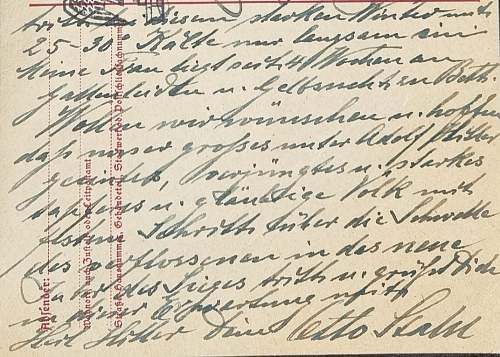 tritt bei diesem starken Winter mit
25-30° Kälte nur langsam ein
Meine Frau liegt seit 4 Wochen an
Gallenleiden u. Gelbsucht zu Bett.
Wollen wir wünschen u. hoffen
daß unser großes unter Adolf Hitler
geeintes, verjüngtes u. starkes
tapferes u. gläubige Volk mit
festem Schritt über die Schwelle
des verflossenen in das neue
Jahr des Sieges tritt u. grüßt Dich
in dieser Erwartung mit
Heil Hitler Dein Otto
Absender:
Wohnort, auch Zustell- oder Leitpostamt
Straße, Hausnummer, Gebäudeteil, Stockwerk od. Postschließfachnummer